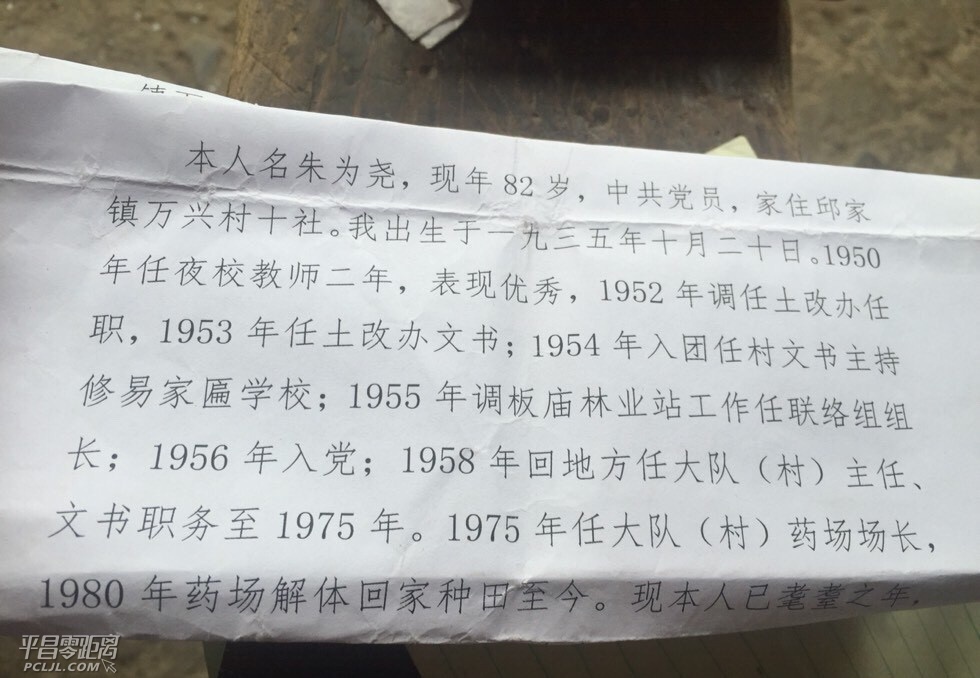 本人名朱为尧，现年 82 岁，中共党员，家住邱家
镇万兴村十社。我出生于一九三五年十月二十日。1950
年任夜校教师二年，表现优秀，1952 年调任土改办任
职，1953 年任土改办文书；1954 年入团任村文书主持
修易家匾学校；1955 年调板庙林业站工作任联络组组
长；1956 年入党；1958 年回地方任大队（村）主任、
文书职务至 1975 年。1975 年任大队（村）药场场长，
1980 年药场解体回家种田至今。现本人已耄耋之年，
平昌零距离
PCLJL.COM